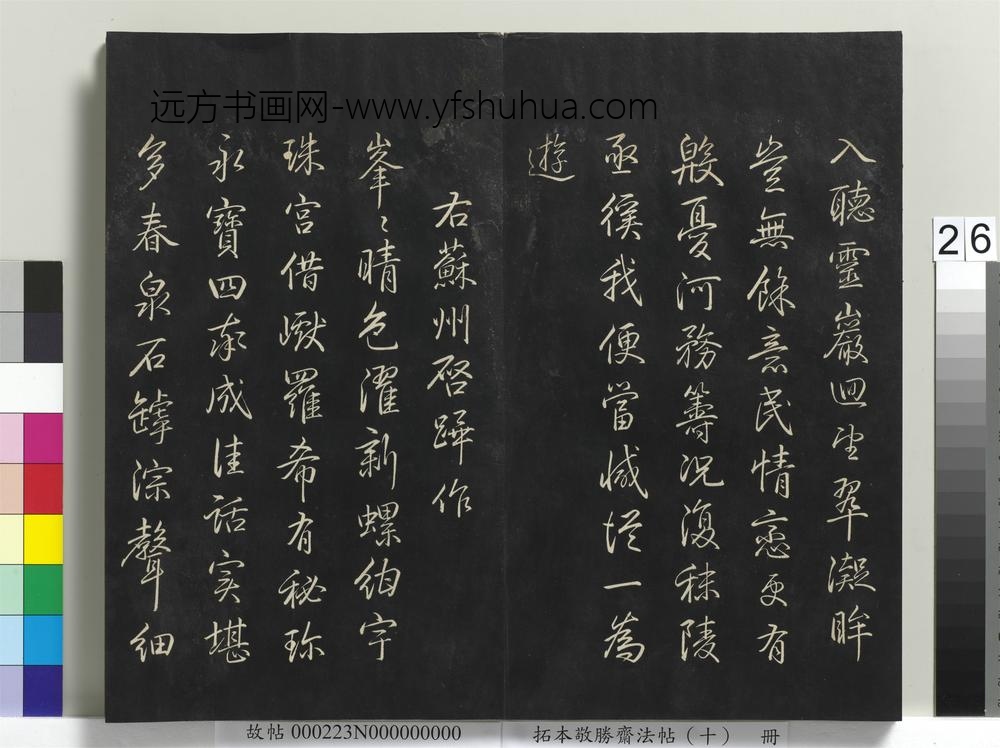 远方书画网-www.yfshuhua.com
入聽靈巖迴望翠凝眸
豈無餘意民情戀更有
殷憂河務籌況復秣陵
亟徯我便當減從一為
遊
右蘇州啓蹕作
峯〻晴色濯新螺紺宇
珠宮借巘羅希有秘珎
永寶四奉成佳話寔堪
多春泉石罅淙聲細
26
故帖 000223N000000000
拓本敬勝齋法帖（十） 冊